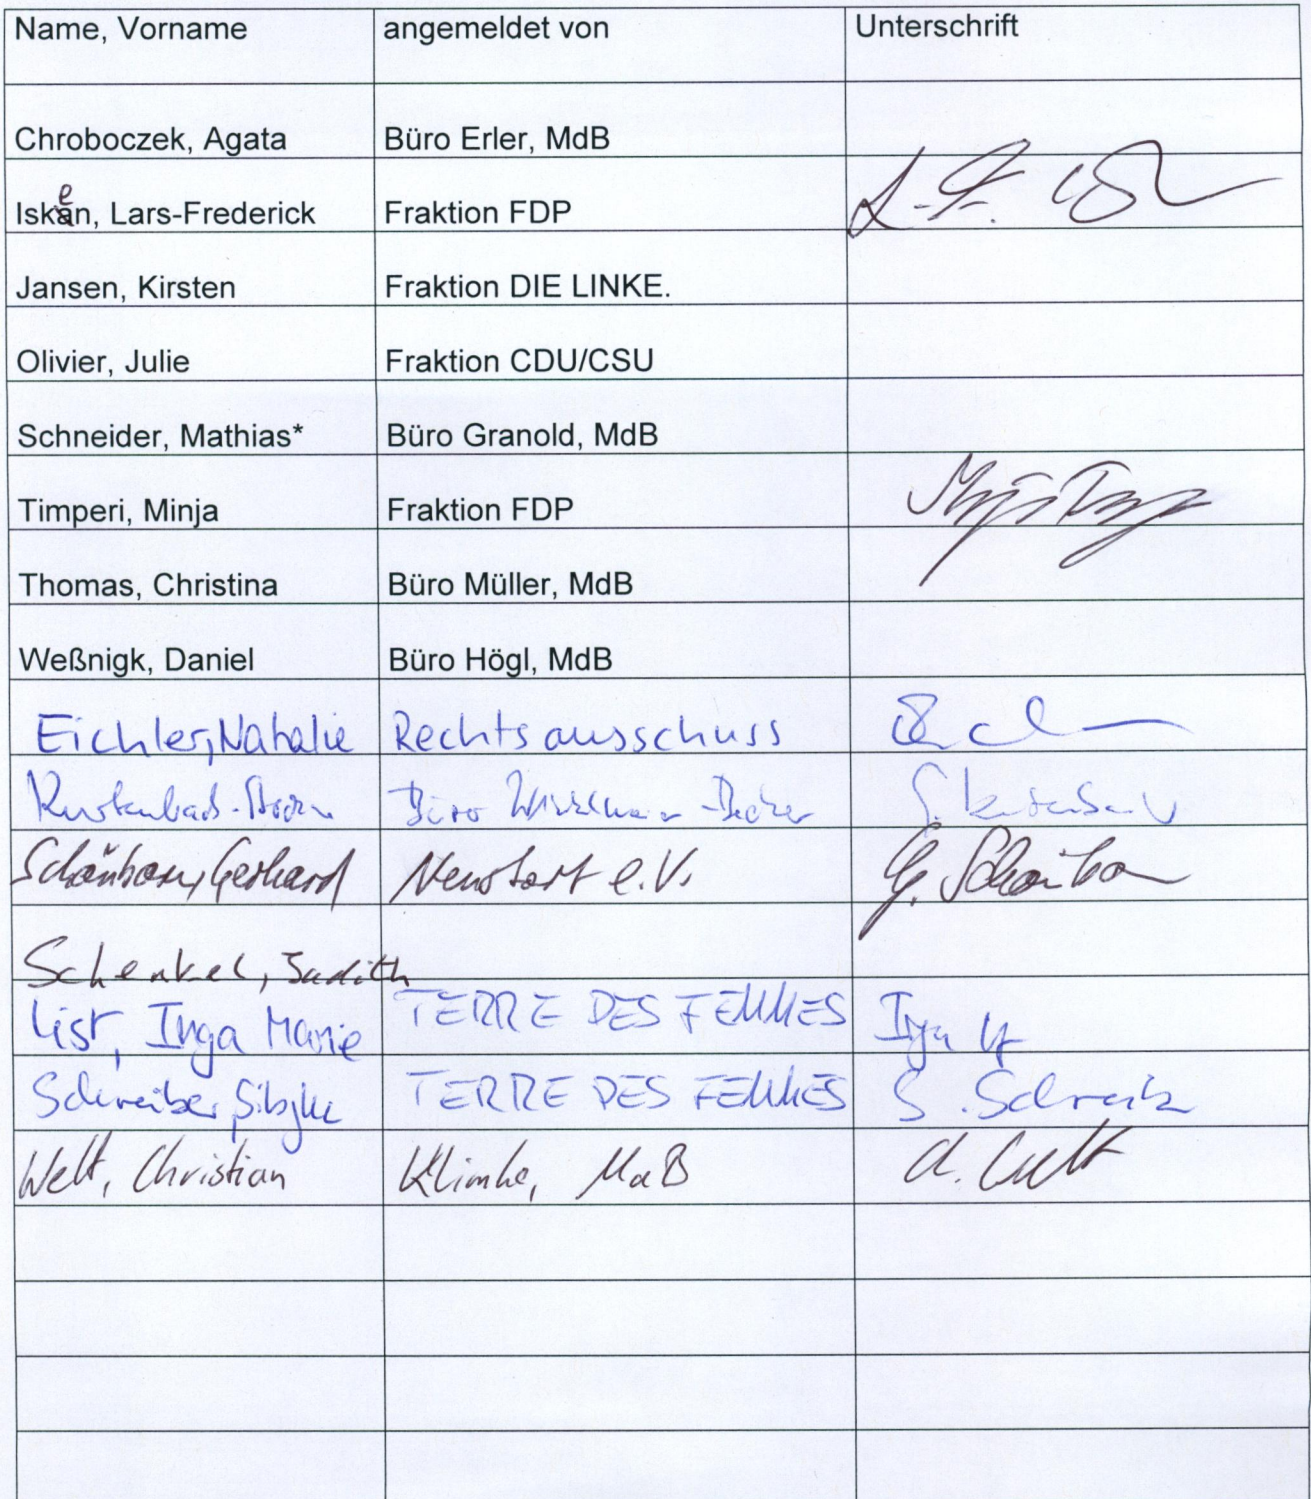 Name, Vorname angemeldet von Unterschrift
Chroboczek, Agata Büro Erler, MdB
Isken, Lars-Frederick Fraktion FDP
Jansen, Kirsten Fraktion DIE LINKE.
Olivier, Julie Fraktion CDU/CSU
Schneider, Mathias* Büro Granold, MdB
Timperi, Minja Fraktion FDP
Thomas, Christina Büro Müller, MdB
Weßnigk, Daniel Büro Högl, MdB
Eichler, Nathalie Rechtsausschuss
Büro
Gerhard e.V. G.
Schenkel, Judith
List, Inga Marie TERRE DES FEMMES Inga
Schreiber, TERRE DES FEMMES S. Schreib
Welt, Christian Klimke, MdB